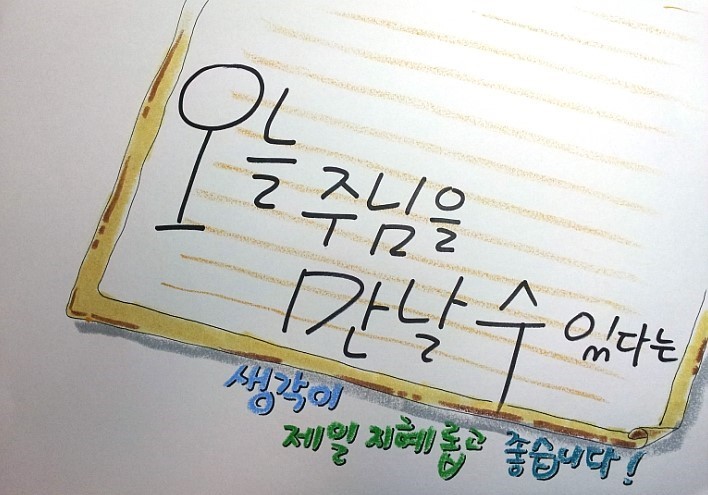 오늘
주님을
만날 수 있다는
생각이
제일 지혜롭고 좋습니다!